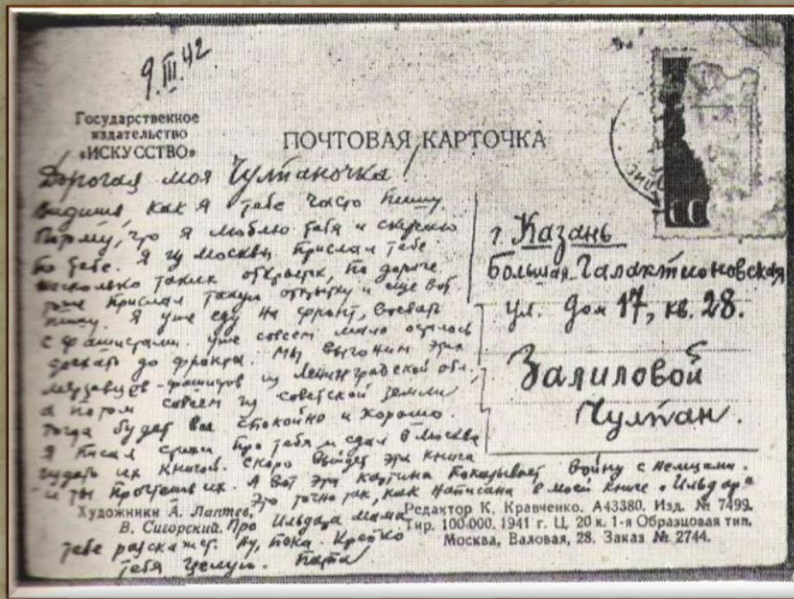 9.III.42
Государственное
издательство
«ИСКУССТВО»
ПОЧТОВАЯ КАРТОЧКА
Дорогая моя Чулпаночка!
видишь, как я тебе часто пишу.
Потому, что я люблю тебя и скучаю
по тебе. Я из Москвы прислал тебе
несколько таких открыток, по дороге
тоже прислал такую открытку и еще вот
пишу. Я уже еду на фронт, воевать
с фашистами. Уже совсем мало осталось
доехать до фронта. Мы выгоним этих
мерзавцев-фашистов из Ленинградской обл.,
а потом совсем из советской земли,
тогда будет все спокойно и хорошо.
Я писал стихи про тебя и сдал в Москва
издать их книгой. Скоро выйдет эта книга
и ты прочтешь их. А вот эта картина показывает войну с немцами.
Это точно так, как написана в моей книге „Ильдар"
Про Ильдара мама
тебе расскажет. Ну, пока. Крепко
тебя целую. Папа
г. Казань
Большая Галактионовская
ул. дом 17, кв. 28.
Залиловой
Чулпан.
Художники А. Лаптев,
В. Сигорский.
Редактор К. Кравченко. А43380. Изд. № 7499.
Тир. 100.000. 1941 г. Ц. 20 к. 1-я Образцовая тип.
Москва, Валовая, 28. Заказ № 2744.